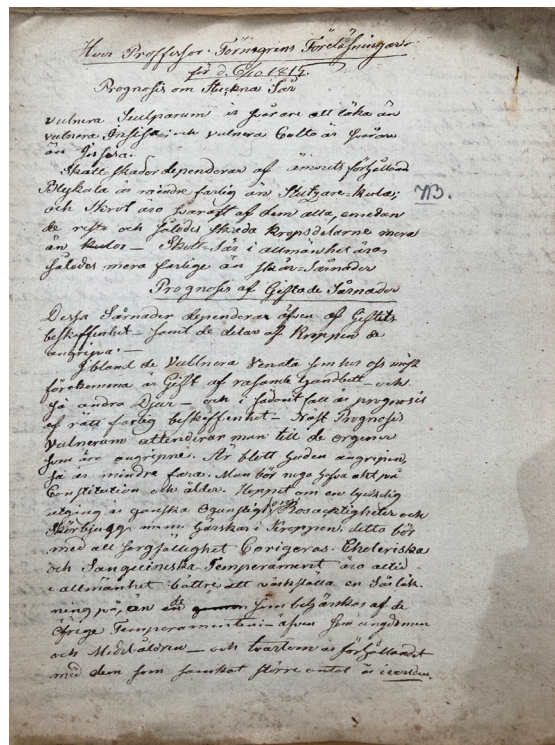 Herr Proffessor Törngrens Föreläsningar
för d. 1817.
Prognosis om Stuckna Sår
vulnera Sculparum är svårare att läka än
vulnera Insisa och vulnera
än Insisa.
Skott skador dependerar af förhålland
Blykula är mindre farlig än Stutzare-kula;
och Skrot äro svårast af dem alla, emedan
de rifva och således skada kropsdelarne mera
än kulor — Skott-Sår i allmänhet äro
således mera farlige än Skär-Sårnader
NB.
Prognosis af Giftade Sårnader
Dessa Sårnader dependerar äfven af Giftets
beskaffenhet — samt de delar af Kroppen de
angripa. —
Ibland de Vullnera Venata som hos oss mäst
förekomma är Gift af rasande hundbett — och
så andra Djur — och i sådant fall är prognosis
af rätt farlig beskaffenhet — Vid Prognosis
Vulnerum attenderar man till de organer
som äro angripne. Är blott huden angripen,
så är mindre fara. Man bör noga hafva akt på
Constitution och ålder. Hoppet om en lyckelig
utgång är ganska Ogunstigt, Bosacktigheter och
Skörbjugg, m.m. härskar i Kroppen, detta bör
med all sorgfällighet Corigeras. Choleriska
och Sangviniska Temperament äro alltid
i allmänhet bättre att värkställa en Sårläk-
ning på, än de som beherskas af de
öfrige Temperamenten — äfven som ungdomen
och Medelåldren — och tvärtom är förhållandet
med dem som större antal år